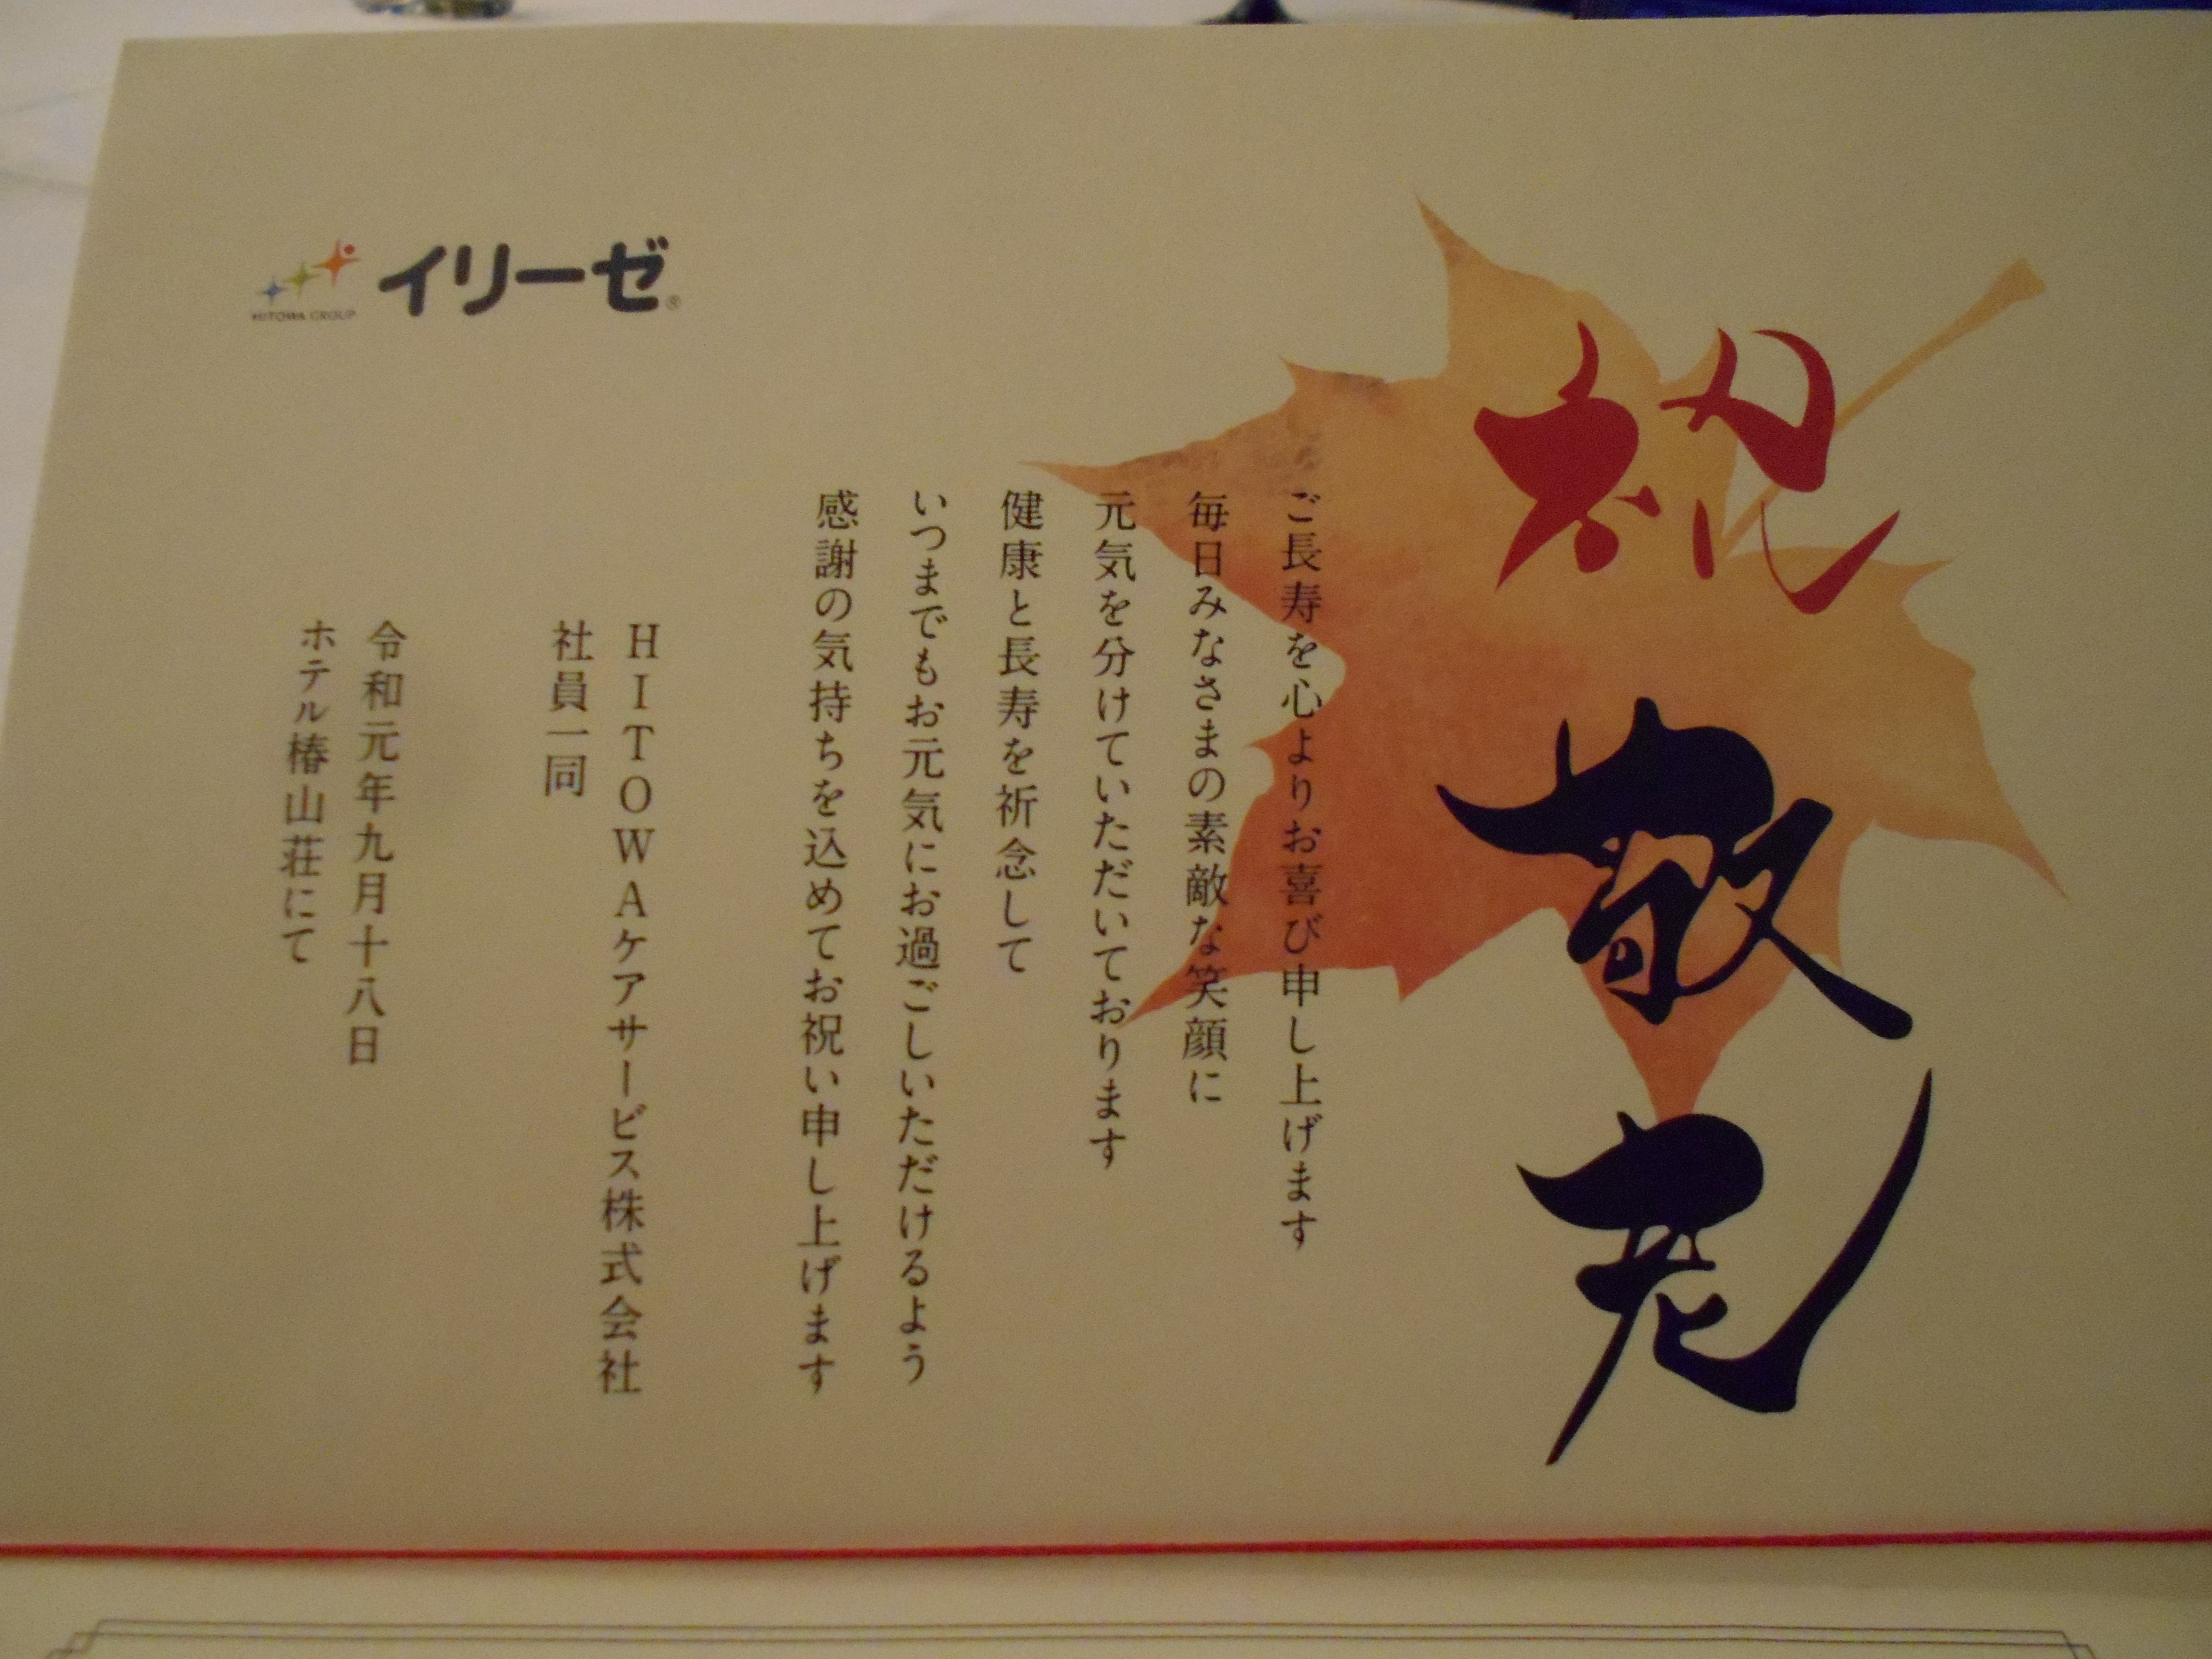 祝 敬老
ご長寿を心よりお喜び申し上げます
毎日みなさまの素敵な笑顔に
元気を分けていただいております
健康と長寿を祈念して
いつまでもお元気にお過ごしいただけるよう
感謝の気持ちを込めてお祝い申し上げます
HITOWAケアサービス株式会社
社員一同
令和元年九月十八日
ホテル椿山荘にて
イリーゼ®
HITOWA GROUP